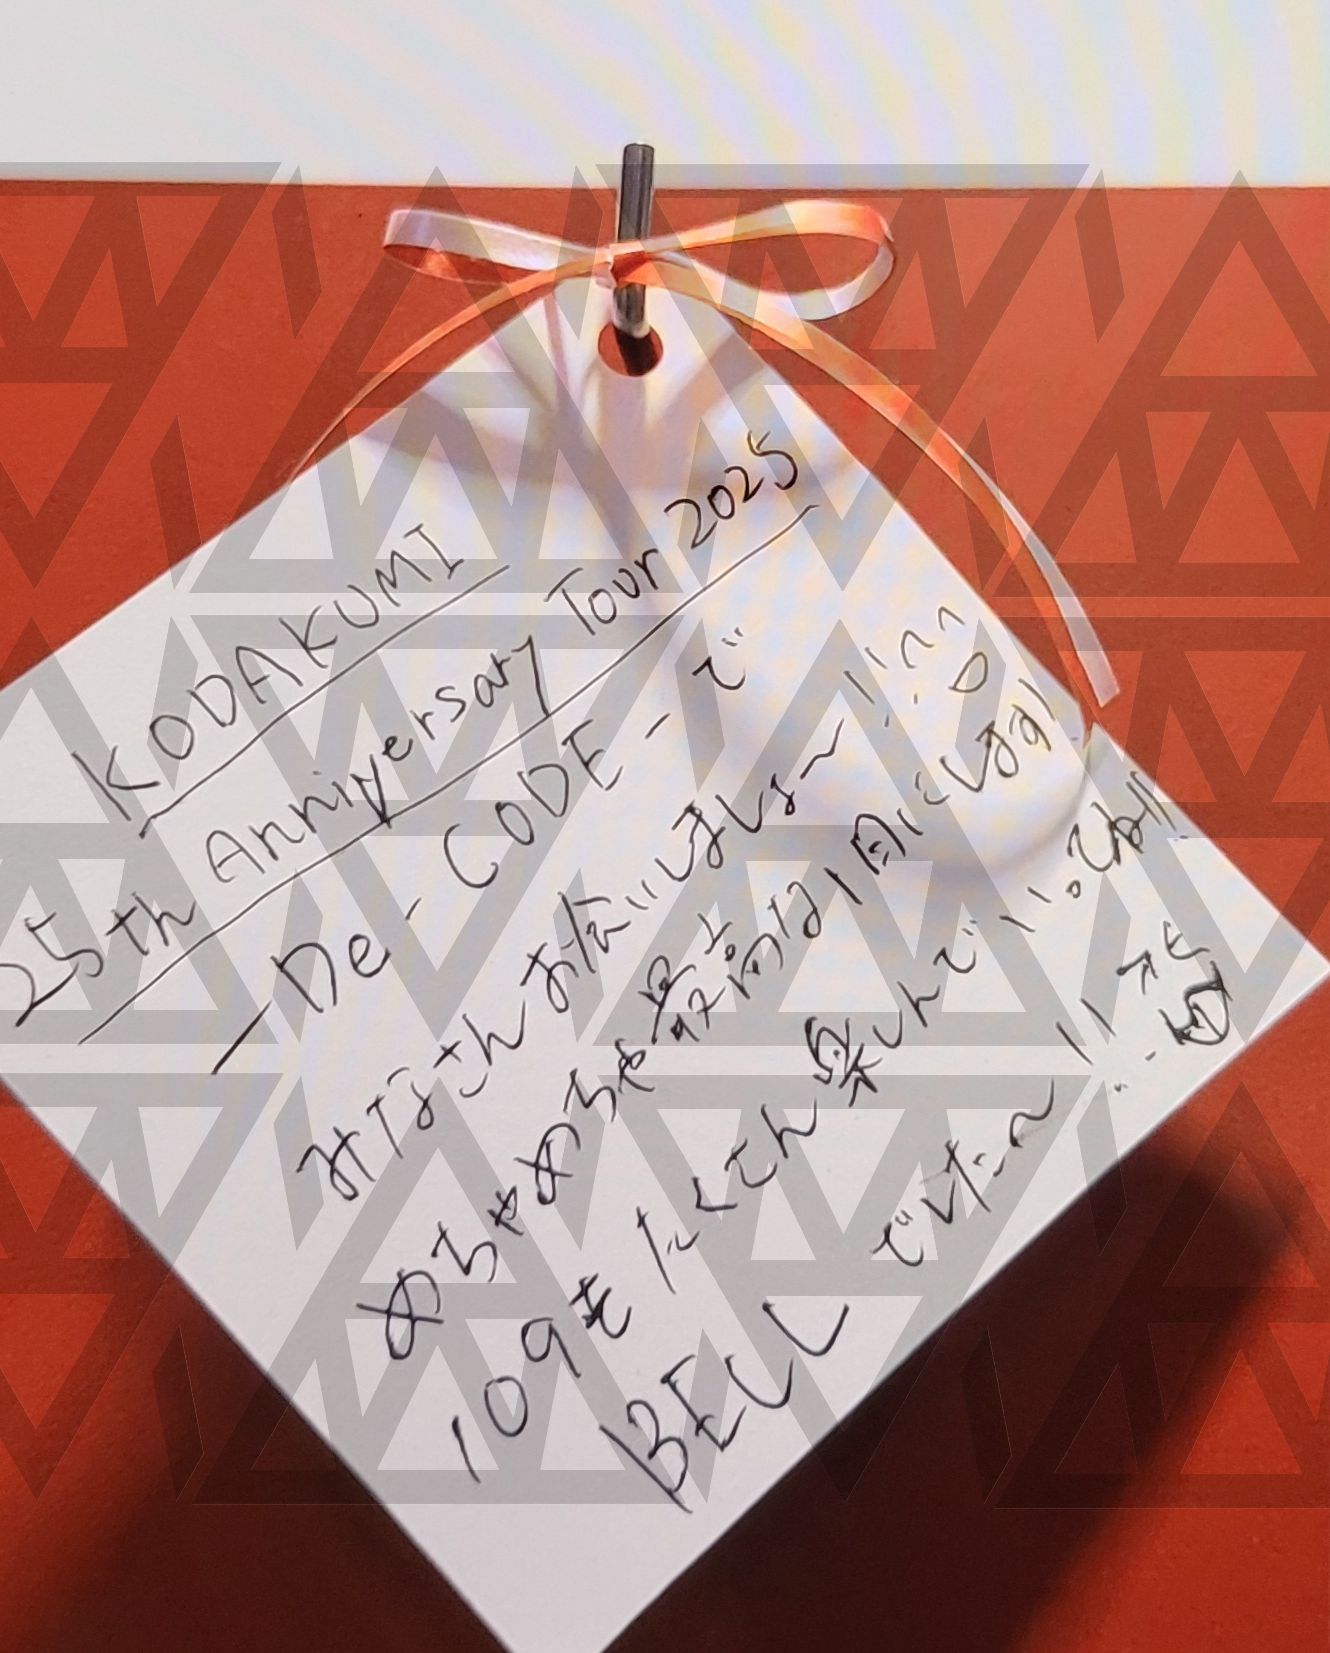 KODAKUMI
25th Anniversary Tour 2025
-De-CODE-で
みなさんお会いしましょ〜!!
めちゃめちゃ最高な1日にします!
109もたくさん楽しんでいってね!!
BELLでした〜!!